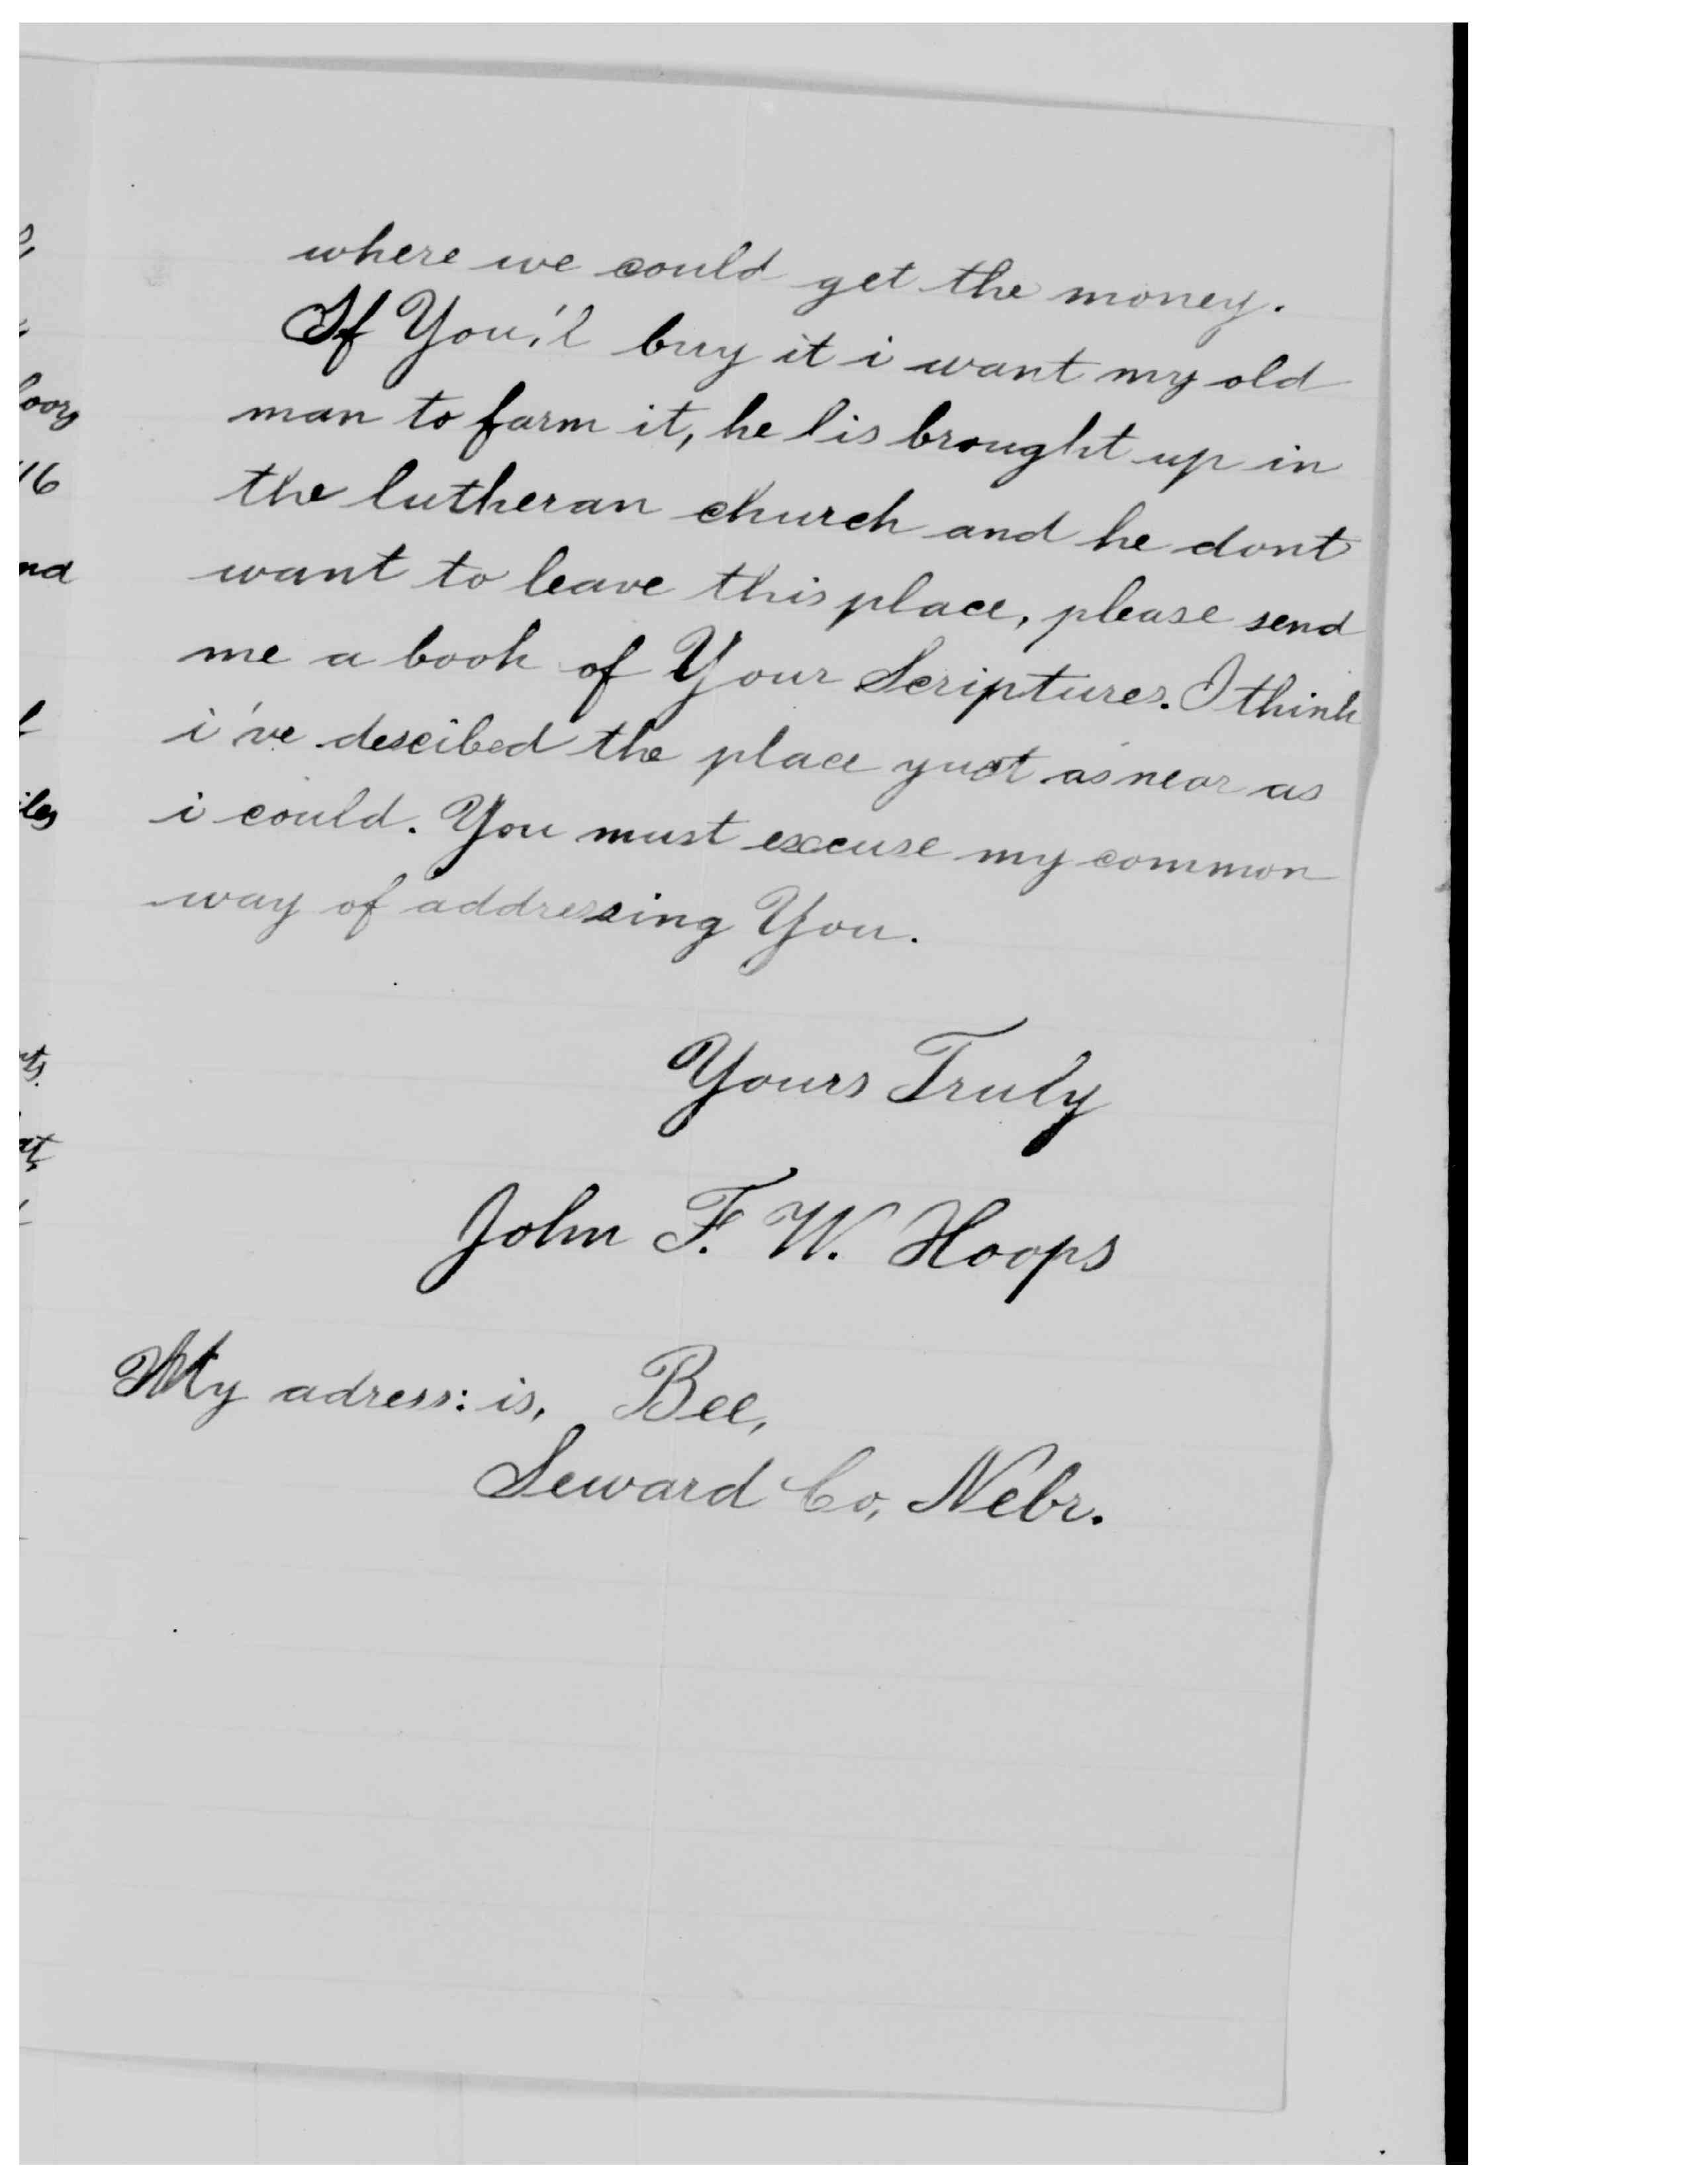 where we could get the money.
If You,'l buy it i want my old
man to farm it, he is brought up in
the lutheran church and he dont
want to leave this place, please send
me a book of Your Scriptures. I think
i've descibed the place yust as near as
i could. You must excuse my common
way of addressing You.
Yours Truly
John F. W. Hoops
My adress: is, Bee,
Seward Co, Nebr.
16
nd